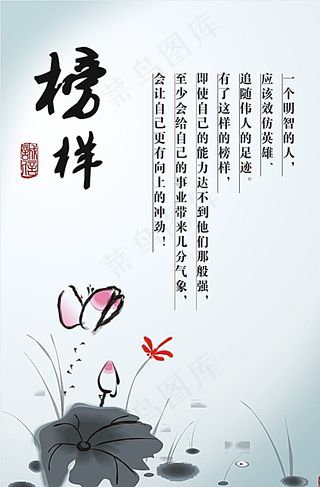 榜样
一个明智的人，
应该效仿英雄、
追随伟人的足迹。
有了这样的榜样，
即使自己的能力达不到他们那般强，
至少会给自己的事业带来几分气象，
会让自己更有向上的冲劲！
菜鸟图库